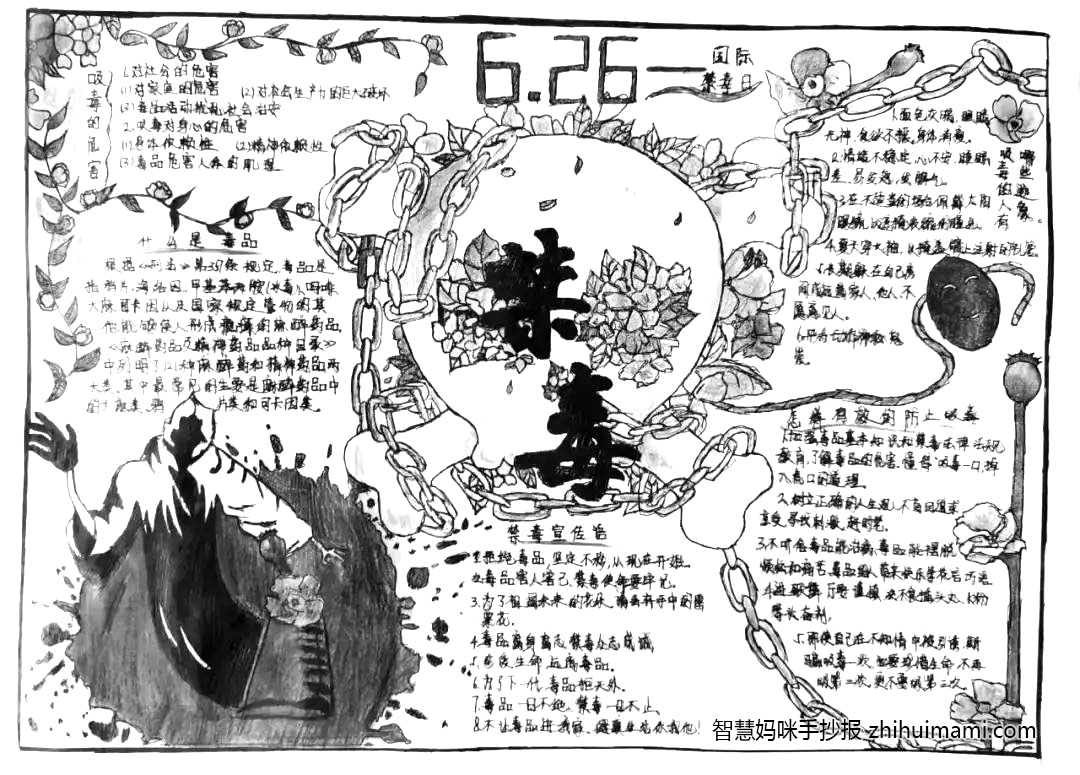 6.26
国际
禁毒日
吸毒的危害
1.对社会的危害
(1)对家庭的危害 (2)对社会生产力的巨大破坏
(3)毒品活动扰乱社会治安
2.吸毒对身心的危害
(1)身体依赖性 (2)精神依赖性
(3)毒品危害人体的机理
什么是毒品
根据《刑法》第357条规定,毒品是
指鸦片、海洛因、甲基苯丙胺(冰毒)、吗啡、
大麻、可卡因以及国家规定管制的其
他能够使人形成瘾癖的麻醉药品
《麻醉药品及精神药品品种目录》
中列明了121种麻醉药和精神药品
大类,其中最常见的主要是麻醉药品中
的大麻类、鸦片类和可卡因类
禁毒
吸毒的人有哪些迹象。
1.面色灰暗、眼睛
无神、食欲不振、身体消瘦。
2.情绪不稳定、心不安、睡眠
差、易发怒、发脾气。
3.在不适当的场合佩戴太阳
眼镜,以
4.夏天穿大袖,以掩盖
5.长期躲在自己房
间或远离家人、他人,不
愿意见人。
怎样有效的防止吸毒
1.接受毒品基本知识和禁毒法律法规
教育,了解毒品的危害,懂得"吸毒一口,掉
入虎口"的道理
2.树立正确的人生观,不盲目追求
享受,寻找刺激,赶时髦。
3.不听信毒品能治病,毒品能摆脱
烦恼和痛苦,毒品给人带来快乐等花言巧语
5.即使自己在不知情中被引诱、欺
骗吸毒一次,也要珍惜生命,不再
吸第二次,更不要吸第三次
禁毒宣传语
1.拒绝毒品,坚定不移,从现在开始
2.毒品害人害己,禁毒使命要牢记。
3.为了祖国未来的花朵,请
粟花。
4.毒品离身离志,禁毒众志成城
5.珍爱生命,远离毒品。
6.为了下一代,毒品拒天外。
7.毒品一日不绝,禁毒一日不止
8.不让毒品进我家,健康
智慧妈咪手抄报 zhihuimami.com